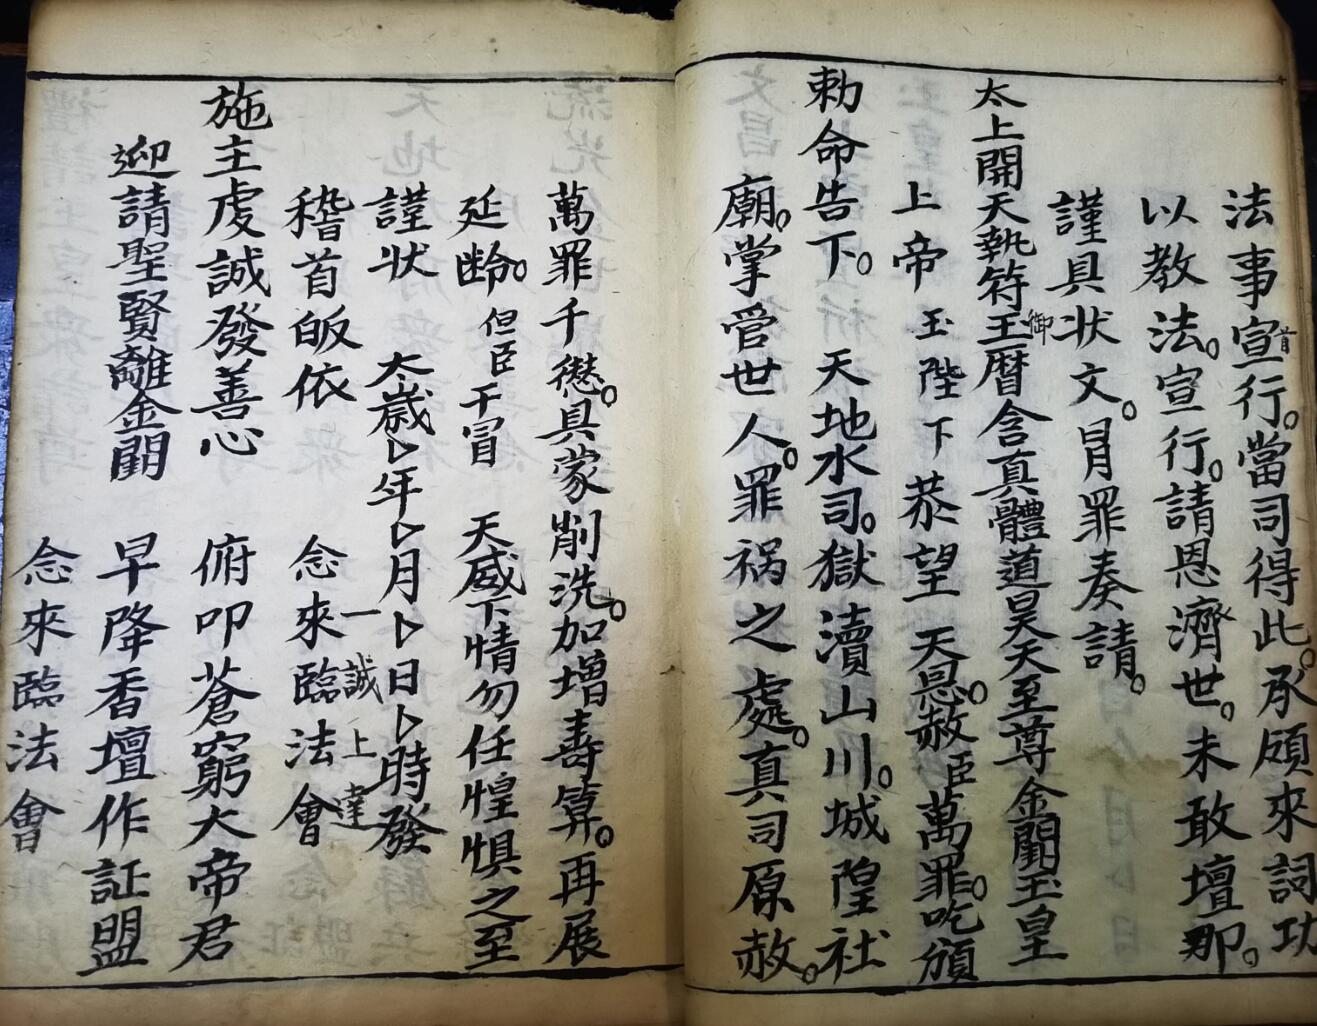 法事宣首行。當司得此。承頎來詞功
以教法。宣行。請恩濟世。未敢壇那。
謹具状文。冐罪奏請。
太上開天執符御玉暦含真體道昊天至尊金闕玉皇
上帝玉陛下恭望天恩。赦臣萬罪。吃頒
勅命告下。天地水司。獄瀆山川。城隍社
廟。掌管世人。罪祸之處。真司原赦。
萬罪千愆。具蒙削洗。加增壽算。再展
延齡。但臣干冒天威下情勿任惶惧之至
謹状太歲卜年卜月卜日卜時發
一誠上達
稽首皈依念來臨法會
施主虔誠發善心俯叩蒼窮大帝君
迎請聖賢離金闕早降香壇作証盟
念來臨法會